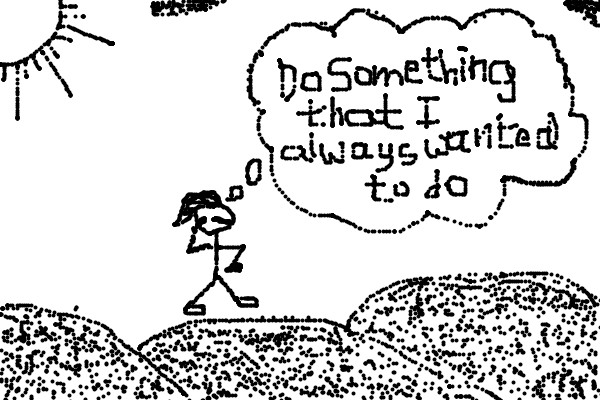 Do Something
that I
always wanted
to do